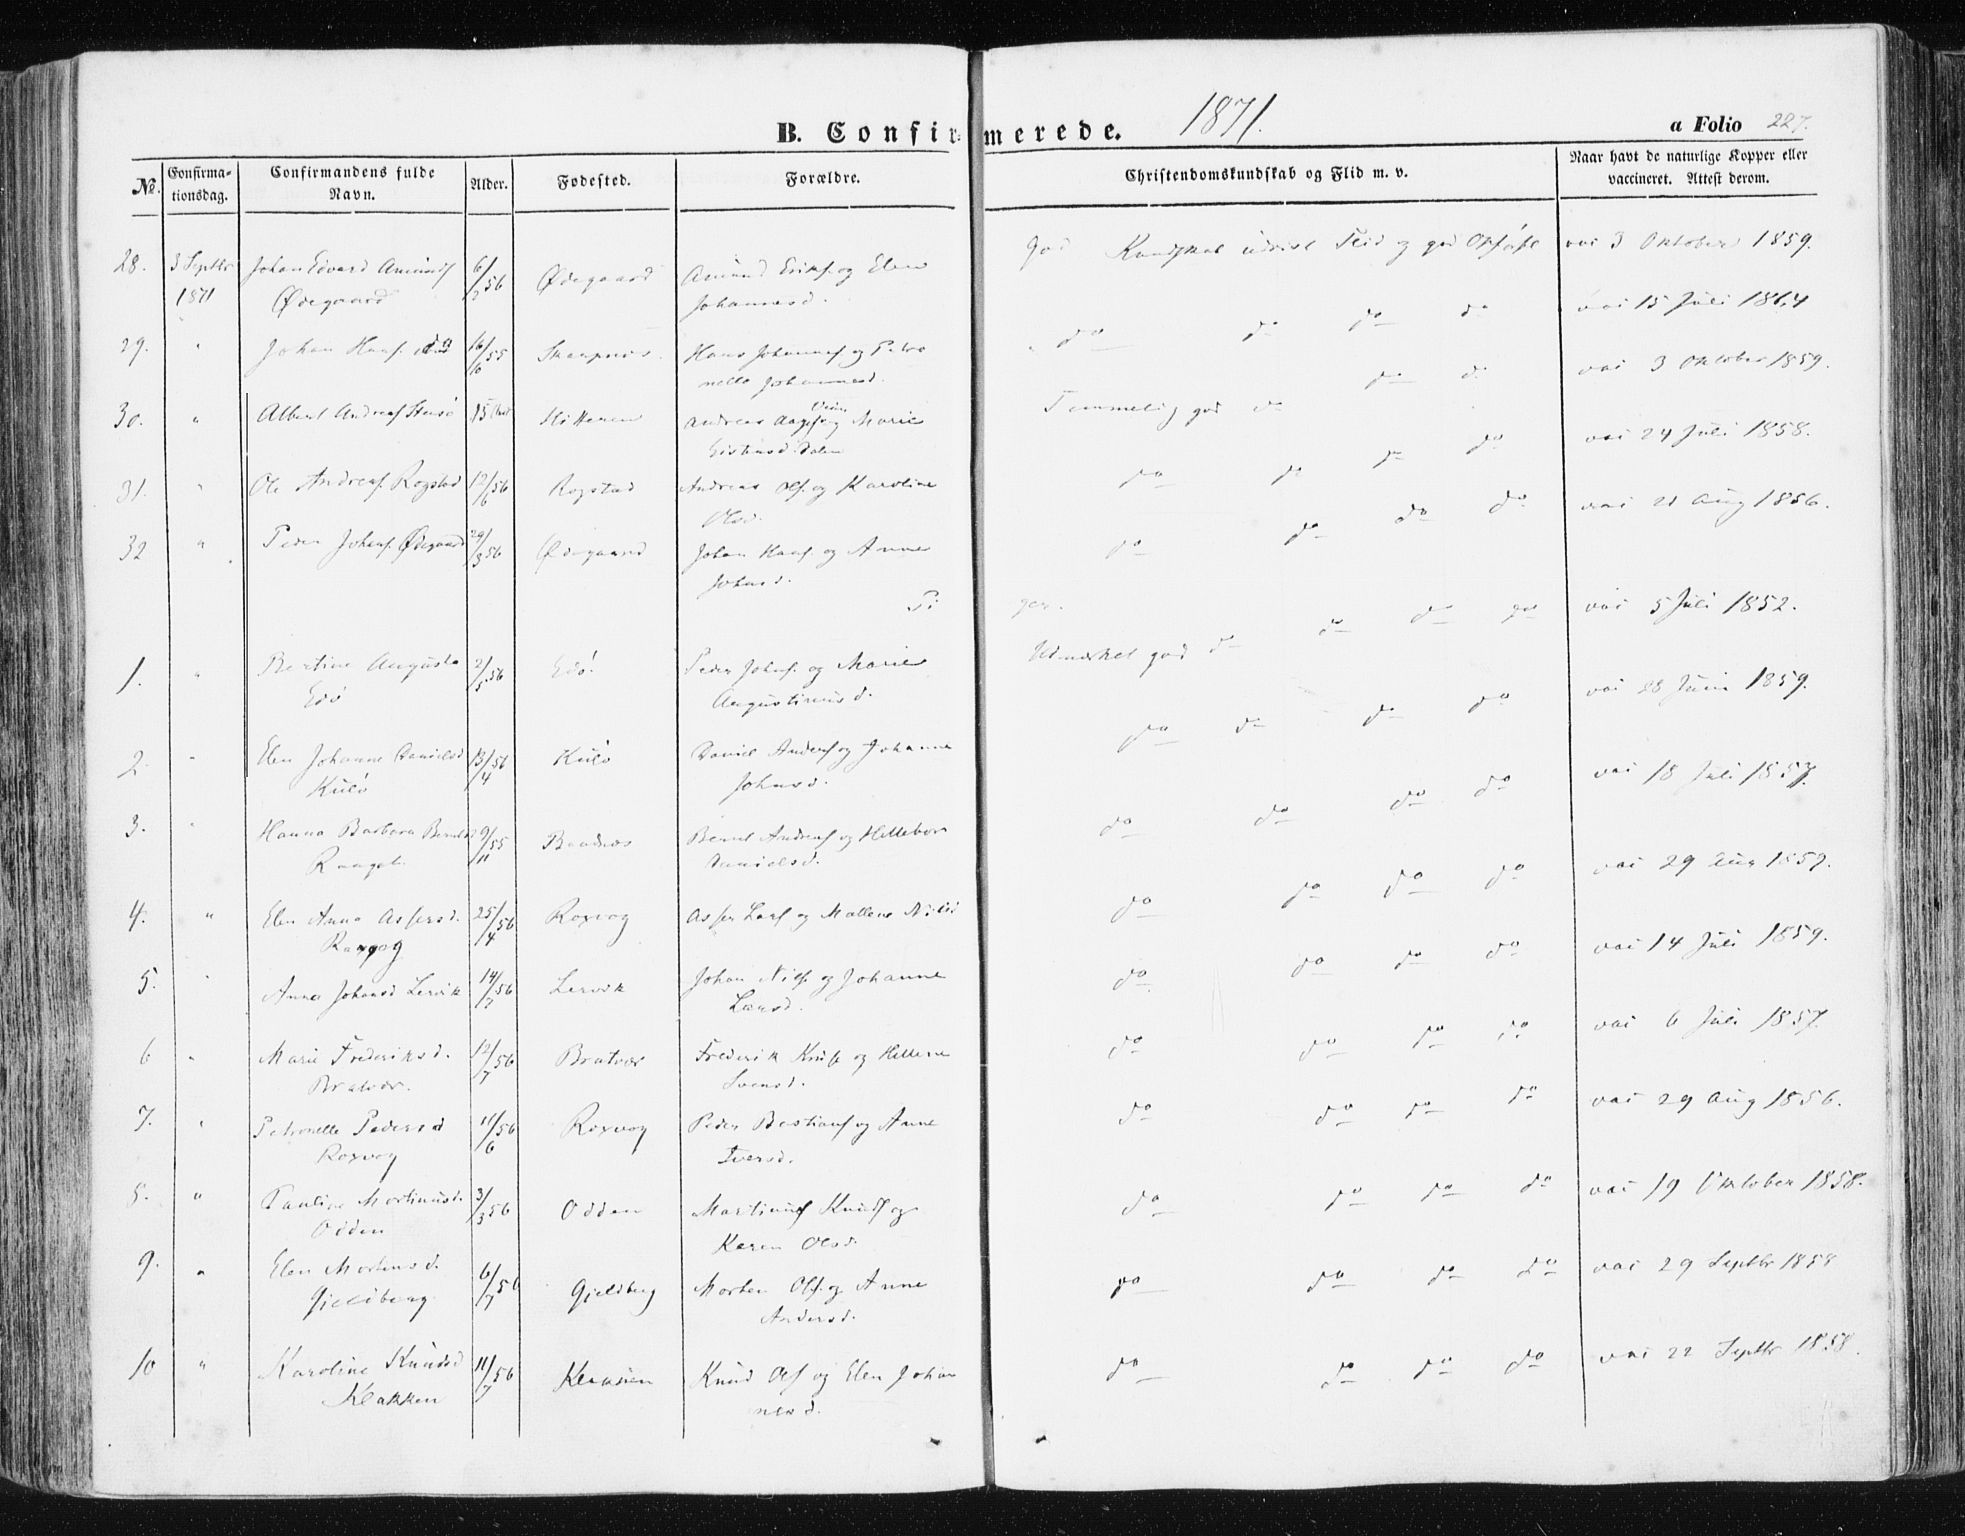 B. Confirmerede. 1871. a Folio 227.
№. Confirmationsdag. Confirmandens fulde Navn. Alder. Fødested. Forældre. Christendomskundskab og Flid m. v. Naar havt de naturlige Kopper eller vaccineret. Attest derom.
28. 3 Septbr 1871 Johan Edvard Amunds Ødegaard 6/2 56 Ødegaard Amund Eriks. og Elen Johannesd. god Kundskab udvist Flid og god Opførs vac 3 Oktober 1859.
29. " Johan Hans. 16/10 55 Hans Johannes og Petronelle Johannesd. do do do do vac 15 Juli 1864
30. " Albert Andreas 15 Hitteren Andreas og Marie Temmelig god do do do vac 3 Oktober 1859.
31. " Ole Andreas. Rogstad 12/6 56 Rogstad Andreas Ols. og Karoline Olsd. do do do do vac 24 Juli 1858.
32 " Peder Johans. Ødegaard 29/3 56 Ødegaard Johan Hans. og Anne Johnsd. do do do do vac 21 Aug 1856.
Piger.
1. " Bertine Augusta Edø 2/5 56 Edø. Peder Johns. og Marie Augustinusd. Udmærket god do do do do vac 5 Juli 1852.
2. " Elen Johanne Danielsd Kulø 13/4 56 Kulø Daniel Anders og Johanne Johnsd. do do do do vac 28 Juni 1859.
3. " Hanna Barbara Berntsd 29/11 55 Bernt Andreas og Hellebor Danielsd. do do do do vac 18 Juli 1857.
4. " Elen Anna Assersd. Roxvog 25/4 56 Roxvog Asser Lars og Mallene Nilsd do do do do vac 29 Aug 1859.
5. " Anna Johansd Lervik 14/7 56 Lervik Johan Nils og Johanne Larsd. do do do do vac 14 Juli 1859.
6 " Marie Frederiksd. Bratvær. 12/7 56 Bratvær Frederik Knuts og Hellene Svensd. do do do do vac 6 Juli 1857.
7. " Petronelle Pedersd Roxvog 11/6 56 Roxvog Peder Bastians og Anne Iversd. do do do do vac 29 Aug 1856.
8. " Pauline Martinusd. Odden 3/3 56 Odden Martinus Knuds og Karen Olsd. do do do do vac 19 Oktober 1858.
9. " Elen Mortensd. Gjeldberg 6/7 56 Gjeldberg Morten Ols. og Anne Andersd. do do do do vac 29 Septbr 1858
10 " Karoline Knudsd Klakken 11/7 56 Knud Ols og Elen Johannesd. do do do do vac 22 Septbr 1858.